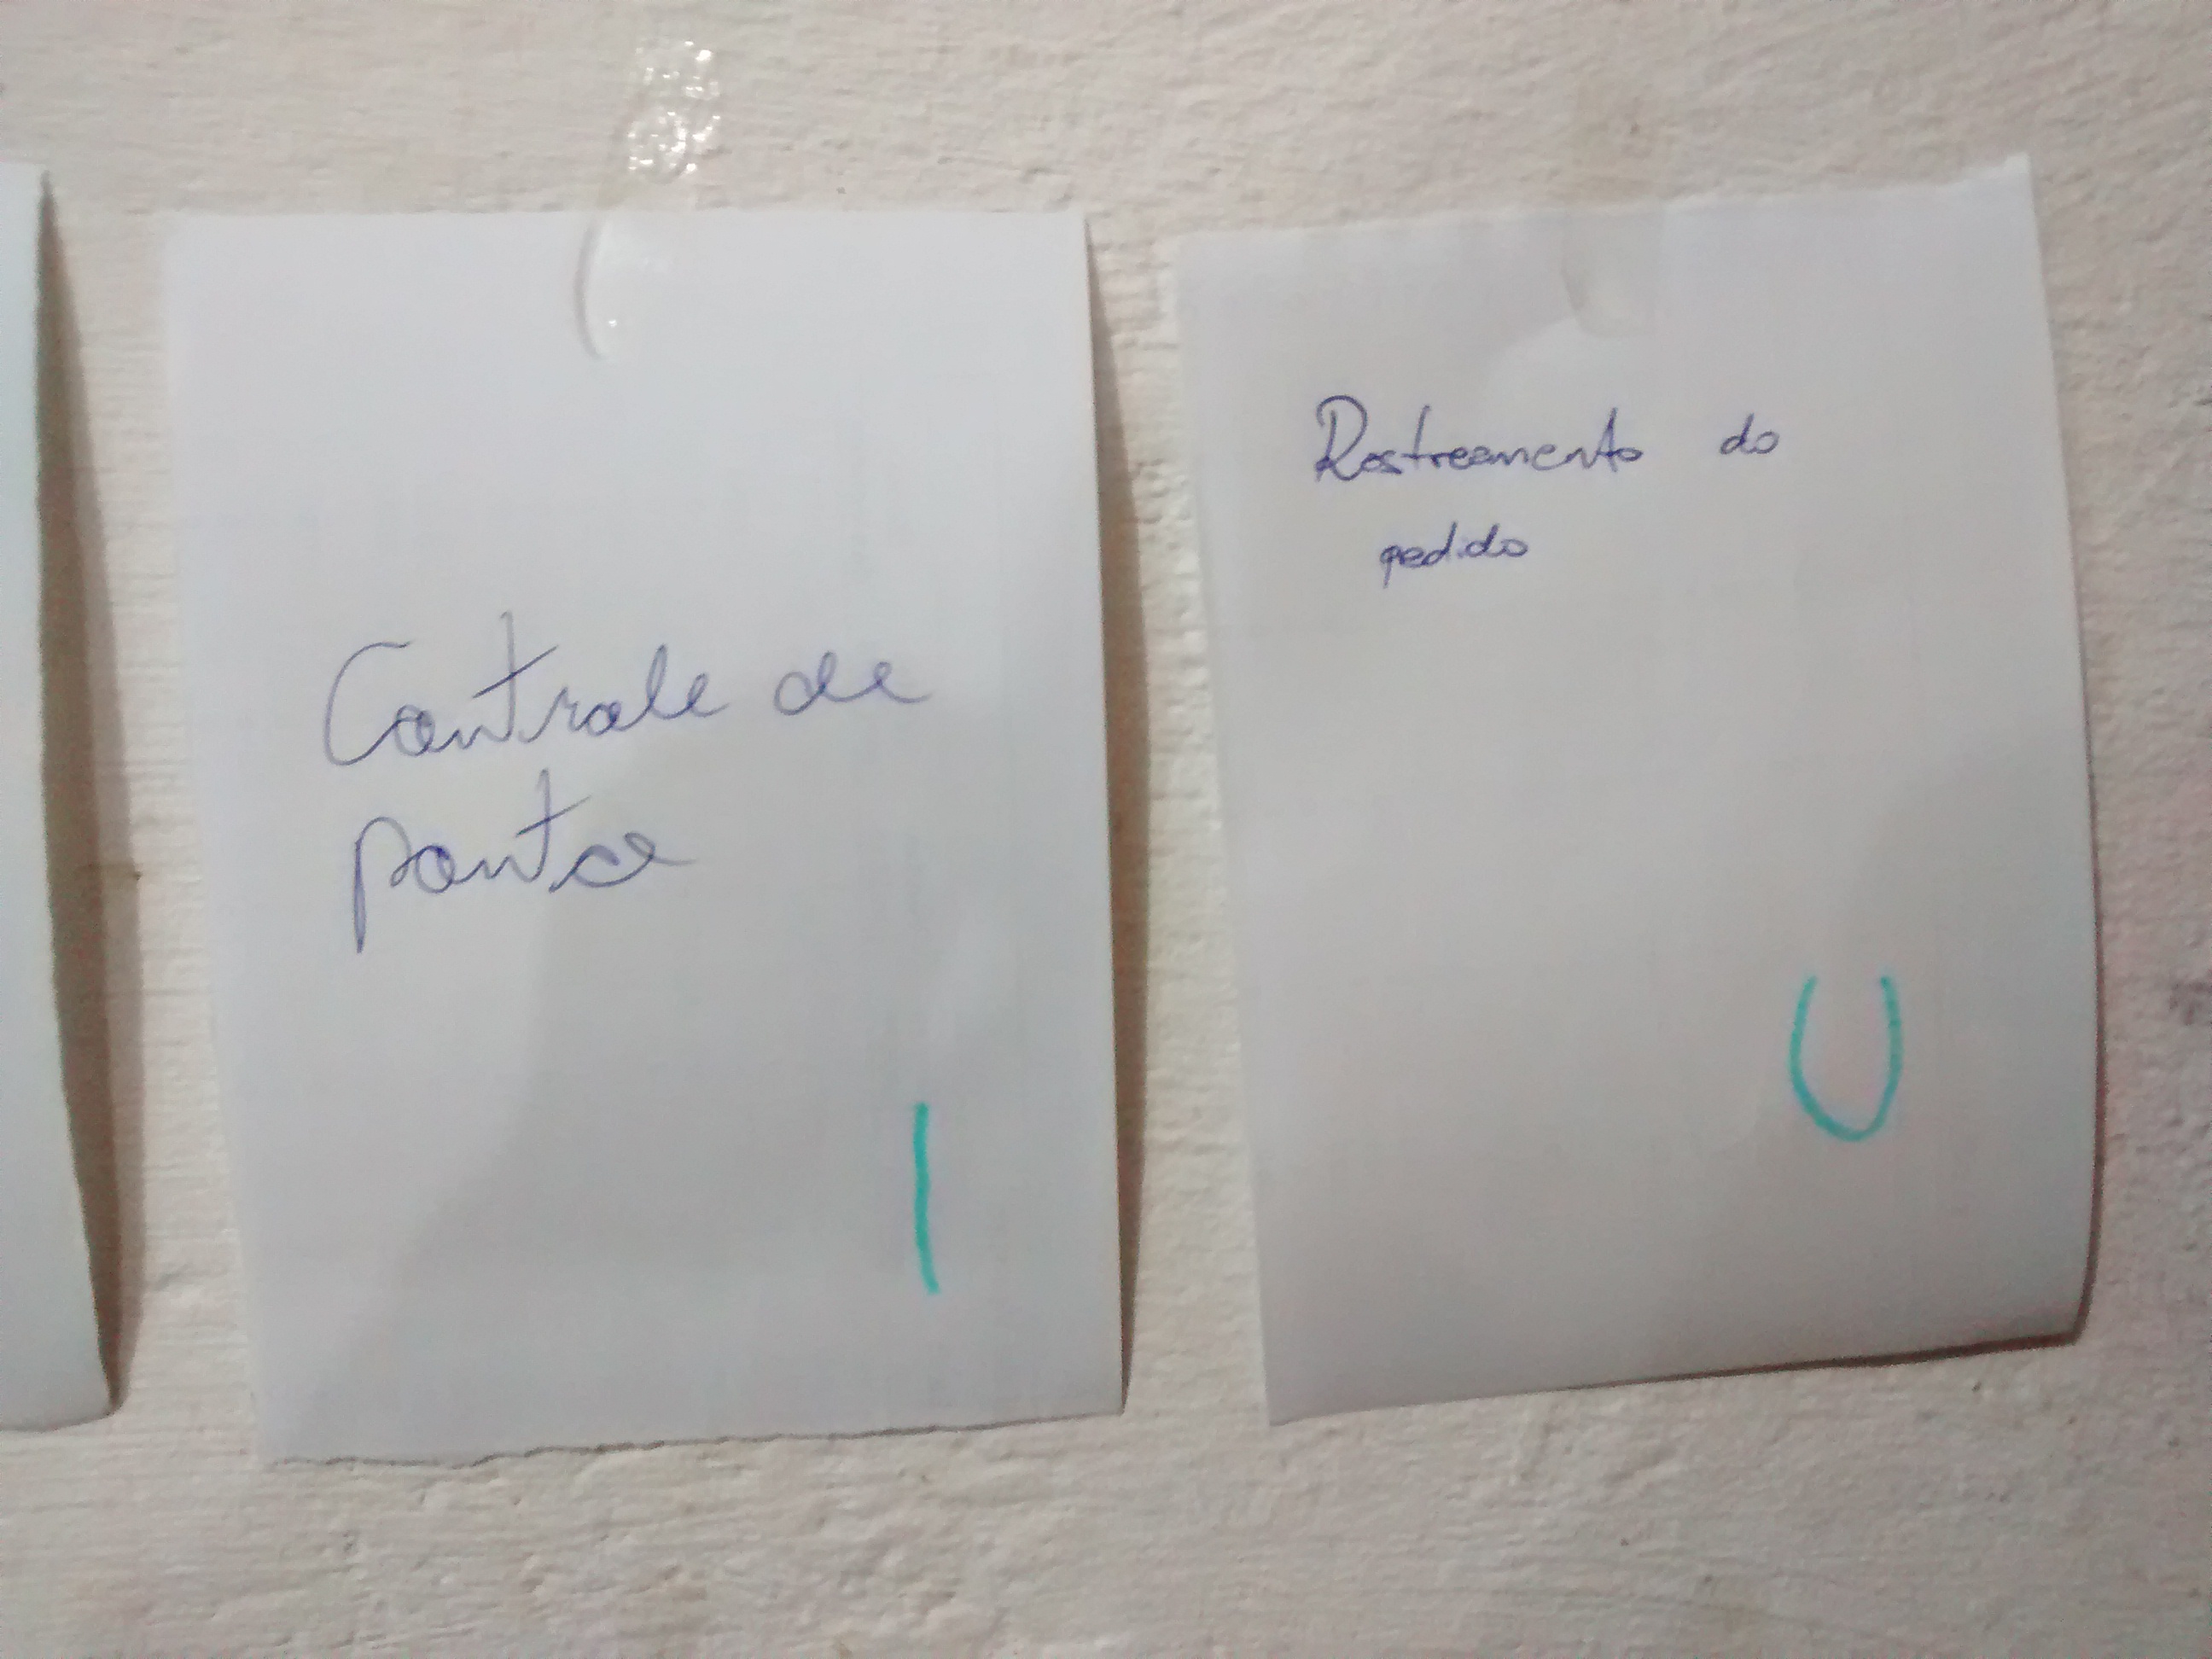 Controle de
ponto
I
Rastreamento do
pedido
U